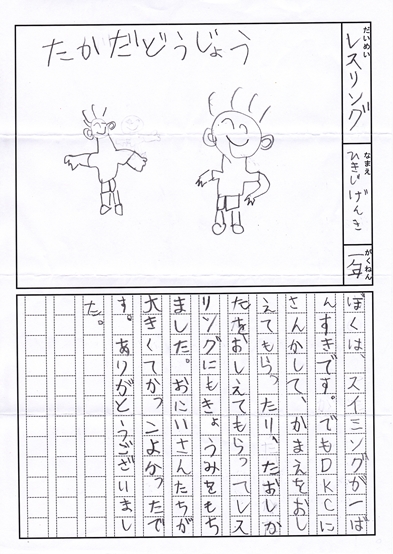 だいめい
レスリング
なまえ
ひきじげんき
がくねん
一年
たかだどうじょう
ぼくは、スイミングが一ば
んすきです。でもDKCに
さんかして、かまえをおし
えてもらったり、たおしか
たをおしえてもらってレス
リングにもきょうみをもち
ました。おにいさんたちが
大きくてかっこよかったで
す。ありがとうございまし
た。